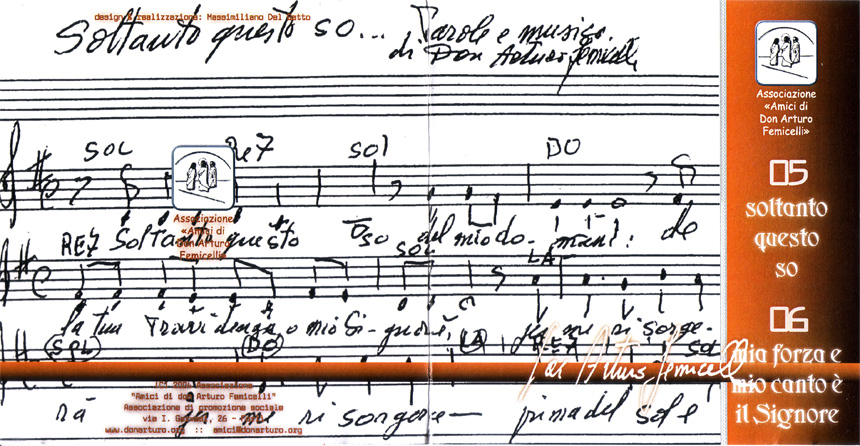 design & realizzazione: Massimiliano Del Gatto
Soltanto questo so... Parole e musica
di Don Arturo Femicelli
SOL RE7 SOL DO
Associazione
«Amici di
Don Arturo
Femicelli»
Soltanto questo so del mio do- mani: de
RE7 SOL LA
la tua Provvidenza, o mio Si- gnore,
per me ri sorge-
(SOL) (DO) (LA) RE7 SOL
Don Arturo Femicelli
rà per me ri sorgere prima del sole
Associazione
"Amici di don Arturo Femicelli"
Associazione di promozione sociale
www.donarturo.org :: amici@donarturo.org
Associazione
«Amici di
Don Arturo
Femicelli»
05
soltanto
questo
so
06
mia forza e
mio canto è
il Signore